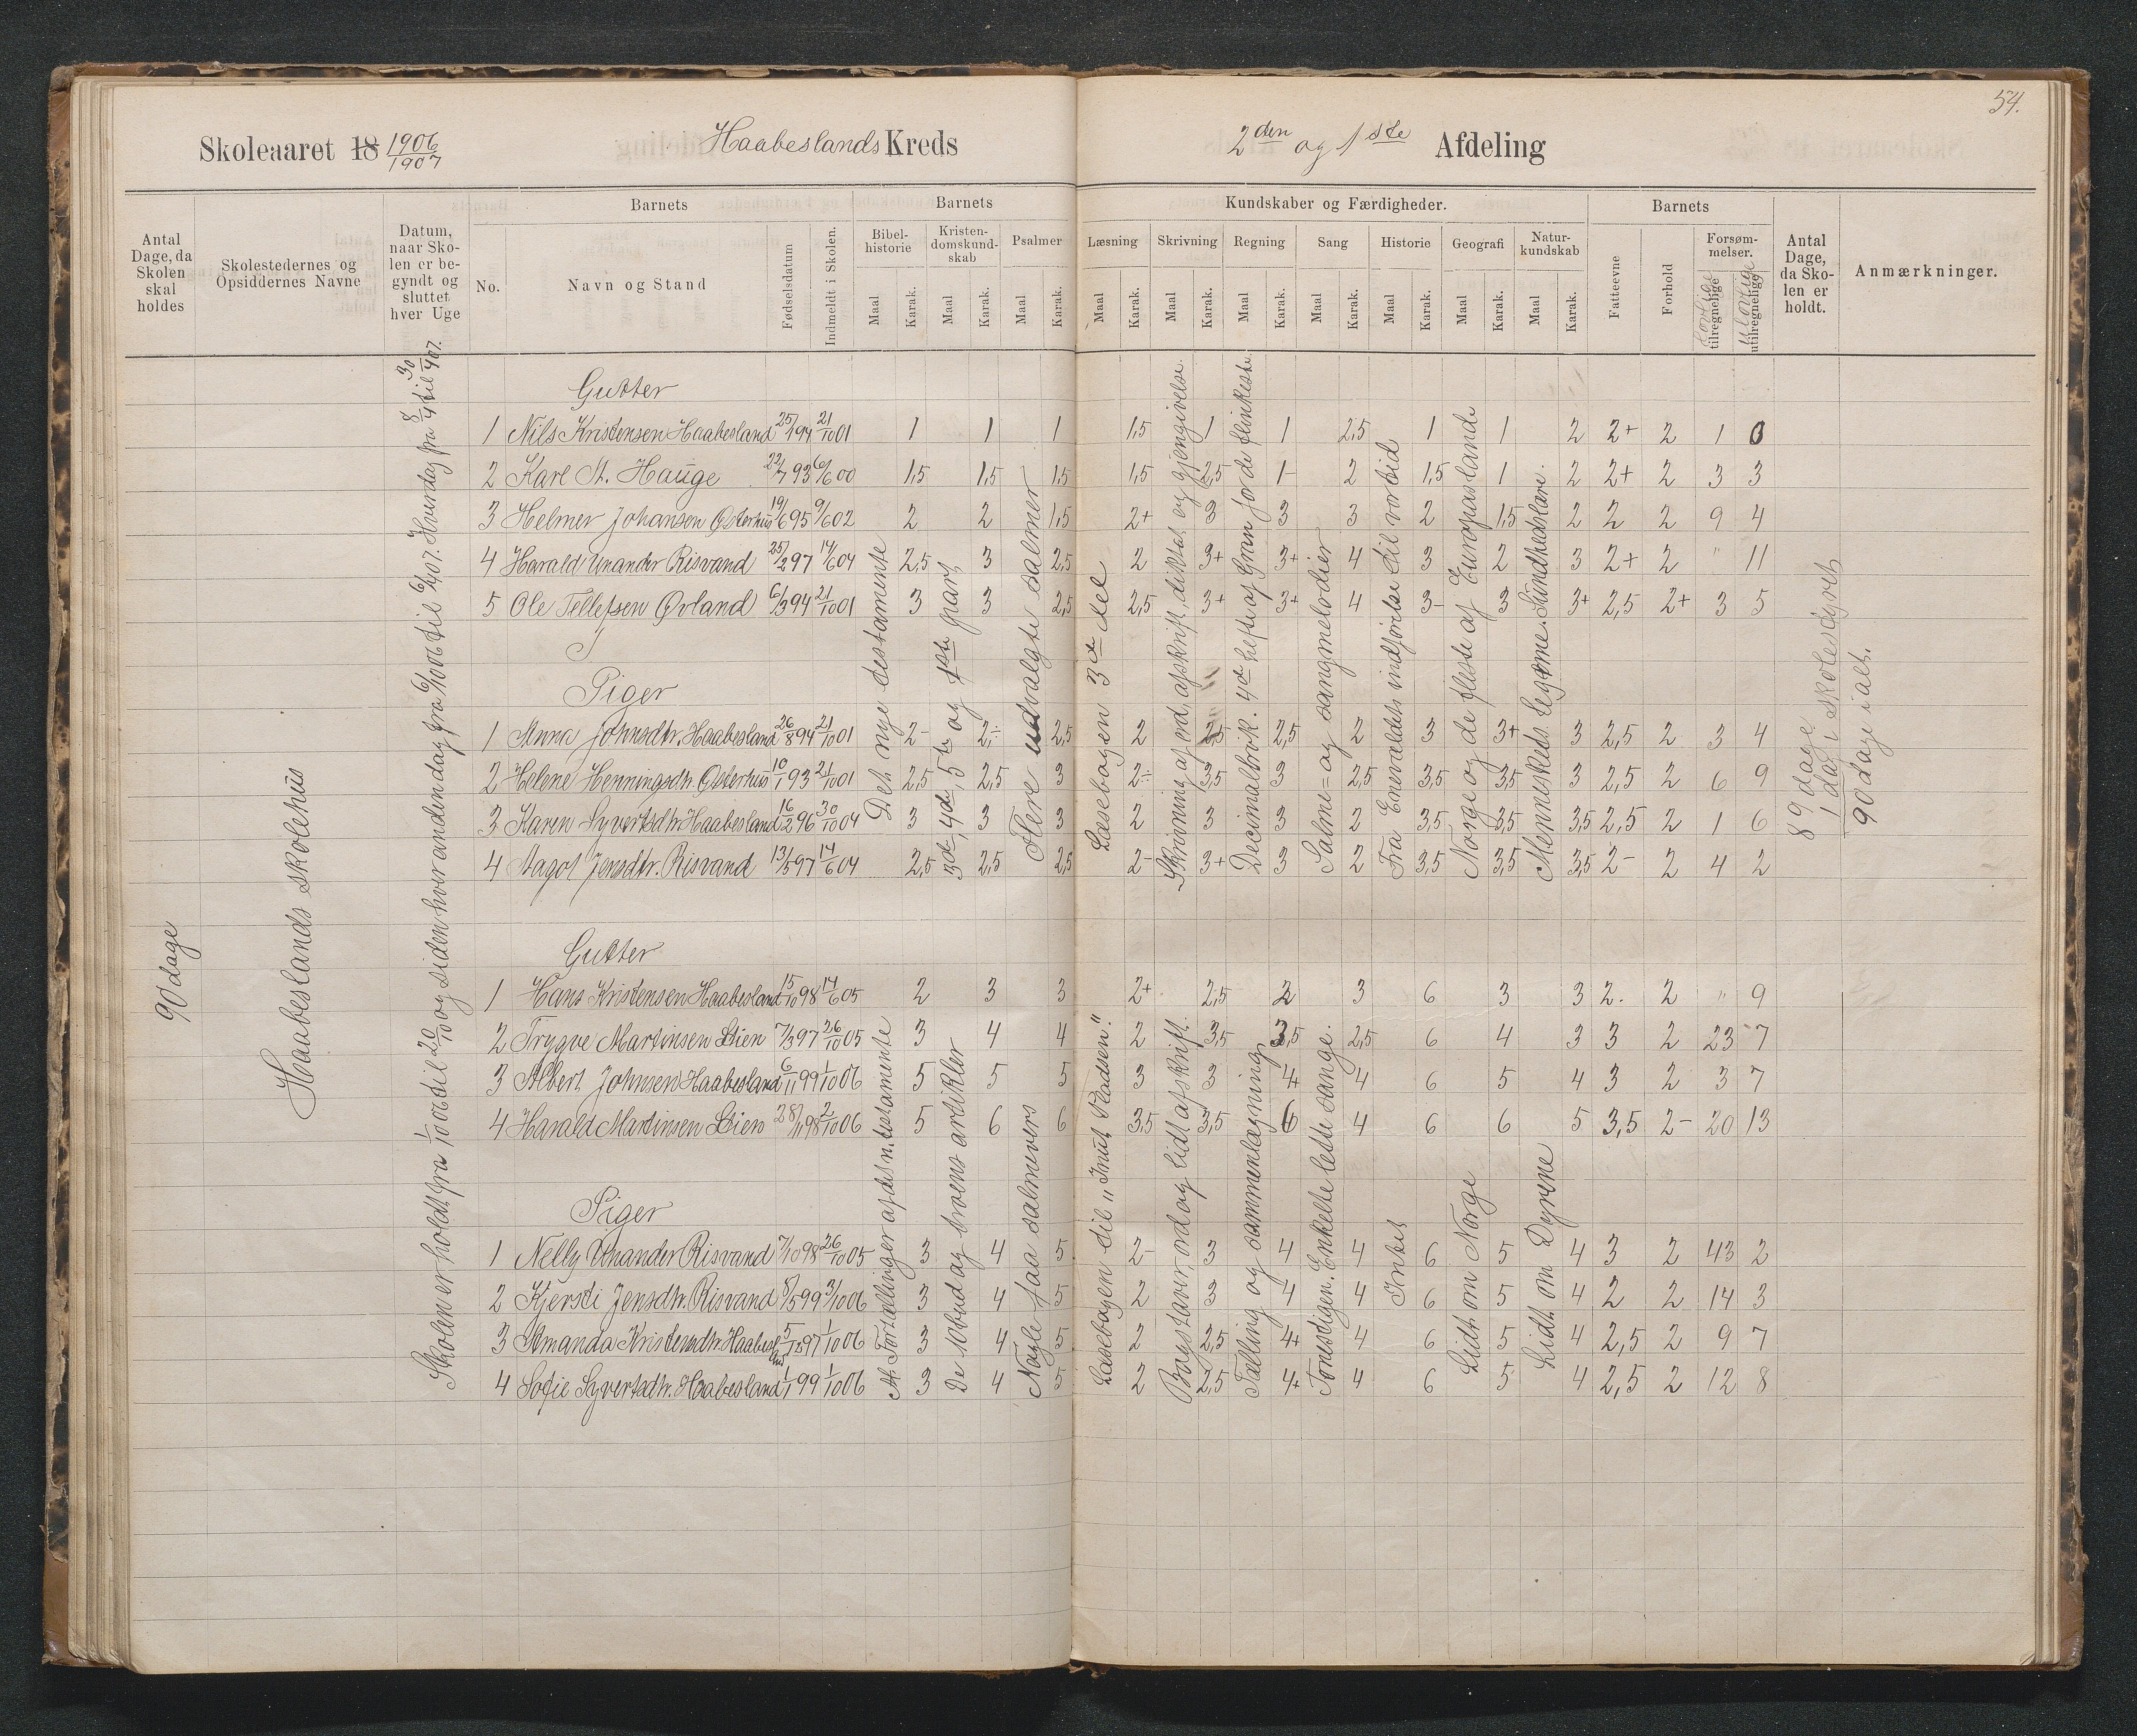 54.
Skoleaaret 18 1906/1907 Haabeslands Kreds 2den og 1ste Afdeling
Antal Dage, da Skolen skal holdes
Skolestedernes og Opsiddernes Navne
Datum, naar Skolen er begyndt og sluttet hver Uge
Barnets
No.
Navn og Stand
Fødselsdatum
Indmeldt i Skolen.
Barnets Kundskaber og Færdigheder.
Bibelhistorie Maal Karak.
Kristendomskundskab Maal Karak.
Psalmer Maal Karak.
Læsning Maal Karak.
Skrivning Maal Karak.
Regning Maal Karak.
Sang Maal Karak.
Historie Maal Karak.
Geografi Maal Karak.
Naturkundskab Maal Karak.
Barnets
Fatteevne
Forhold
Forsømmelser.
Lovlige tilregnelige
Ulovlige utilregnelige
Antal Dage, da Skolen er holdt.
Anmærkninger.
90 dage
Haabeslands skolehus
Skolen er holdt fra 1/10 06 til 20/10 og siden hver anden dag fra 6/10 06 til 6/4 07. Hverdag fra 8/4 til 30/4 07.
Gutter
1 Nils Kristensen Haabesland 25/1 94 21/10 01 1 1 1 1,5 1 1 2,5 1 1 2 2+ 2 1 0
2 Karl St. Hauge 22/7 93 6/6 00 1,5 1,5 1,5 1,5 2,5 1- 2 1,5 1 2 2+ 2 3 3
3 Helmer Johansen Østerhus 19/6 95 9/6 02 2 2 1,5 2+ 3 3 3 2 1,5 2 2 2 9 4
4 Harald Unander Risvand 25/2 97 14/6 04 2,5 3 2,5 2 3+ 3+ 4 3 2 3 2+ 2 " 11
5 Ole Tellefsen Øvland 6/3 94 21/10 01 3 3 2,5 2,5 3+ 3+ 4 3- 3 3+ 2,5 2+ 3 5
Piger
1 Anna Johnsdtr. Haabesland 26/8 94 21/10 01 2- 2÷ 2,5 2 2,5 2,5 2 3 3+ 3 2,5 2 3 4
2 Helene Henningsdtr. Østerhus 10/1 93 21/10 01 2,5 2,5 3 2÷ 3,5 3 2,5 3,5 3,5 3 2,5 2 6 9
3 Karen Syvertsdtr. Haabesland 16/2 96 30/10 04 3 3 3 2 3 3 2 3,5 3,5 3,5 2,5 2 1 6
4 Aagot Jensdtr. Risvand 13/5 97 14/6 04 2,5 2,5 2,5 2- 3+ 3 2 3,5 3,5 3,5 2- 2 4 2
Det nye testamente
3de, 4de, 5te og 1ste part
Flere udvalgte salmer
Læsebogen 3de del
Skrivning af ord, afskrift, diktat og gjengivelse.
Decimalbrøk. 4de hefte af Gran for de flinkeste
Salme= og sangmelodier
Fra Enevældets indførelse til vor tid
Norge og de fleste af Europas lande
Menneskets legeme. Sundhedslære.
89 dage
1 dag i skolestyret
90 dage i alt.
Gutter
1 Hans Kristensen Haabesland 15/10 98 14/6 05 2 3 3 2+ 2,5 2 3 6 3 3 2. 2 " 9
2 Trygve Martinsen Stien 7/3 97 26/10 05 3 4 4 2 3,5 3,5 2,5 6 4 3 3 2 23 7
3 Albert Johnsen Haabesland 6/11 99 1/10 06 5 5 5 3 3 4 4 6 5 4 3 2 3 7
4 Harald Martinsen Stien 28/11 98 2/10 06 5 6 6 3,5 3,5 6 4 6 6 5 3,5 2- 20 13
Piger
1 Nelly Unander Risvand 7/10 98 26/10 05 3 4 5 2- 3 4 4 6 5 4 3 2 43 2
2 Kjersti Jensdtr. Risvand 8/5 99 3/10 06 3 4 5 2 3 4 4 6 5 4 2 2 14 3
3 Amanda Kristensdtr. Haabesland 5/10 97 1/10 06 3 4 5 2 2,5 4+ 4 6 5 4 2,5 2 9 7
4 Sofie Syvertsdtr. Haabesland 1/1 99 1/10 06 3 4 5 2 2,5 4+ 4 6 5 4 2,5 2 12 8
Fortællinger af det n. testamente
De 10 bud og troens artikler
Nogle faa salmevers
Læsebogen til „Knut Pladsen".
Bogstaver, ord og lidt afskrift.
Tælling og sammenlægning
Tonestigen. Enkelte lette sange.
Intet
Lidt om Norge
Lidt om Dyrene